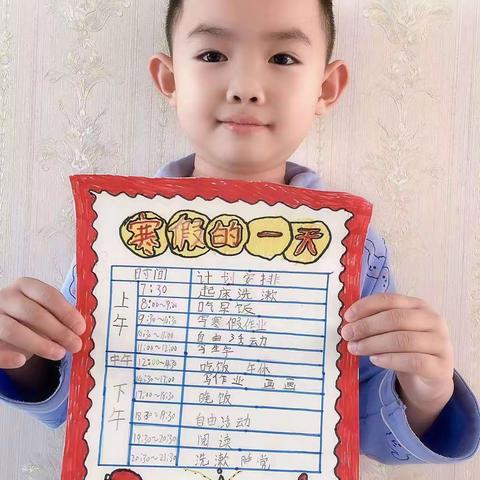 寒假的一天
时间 计划安排
上午
7:30 起床洗漱
8:00~9:00 吃早饭
9:30~10:30 写寒假作业
自由活动
11:00~12:00
中午 吃饭 午休
下午
14:30~17:00 写作业 画画
17:00~18:30 晚饭
18:30~19:30 自由活动
19:30~20:30 阅读
20:30~21:30 洗漱 睡觉